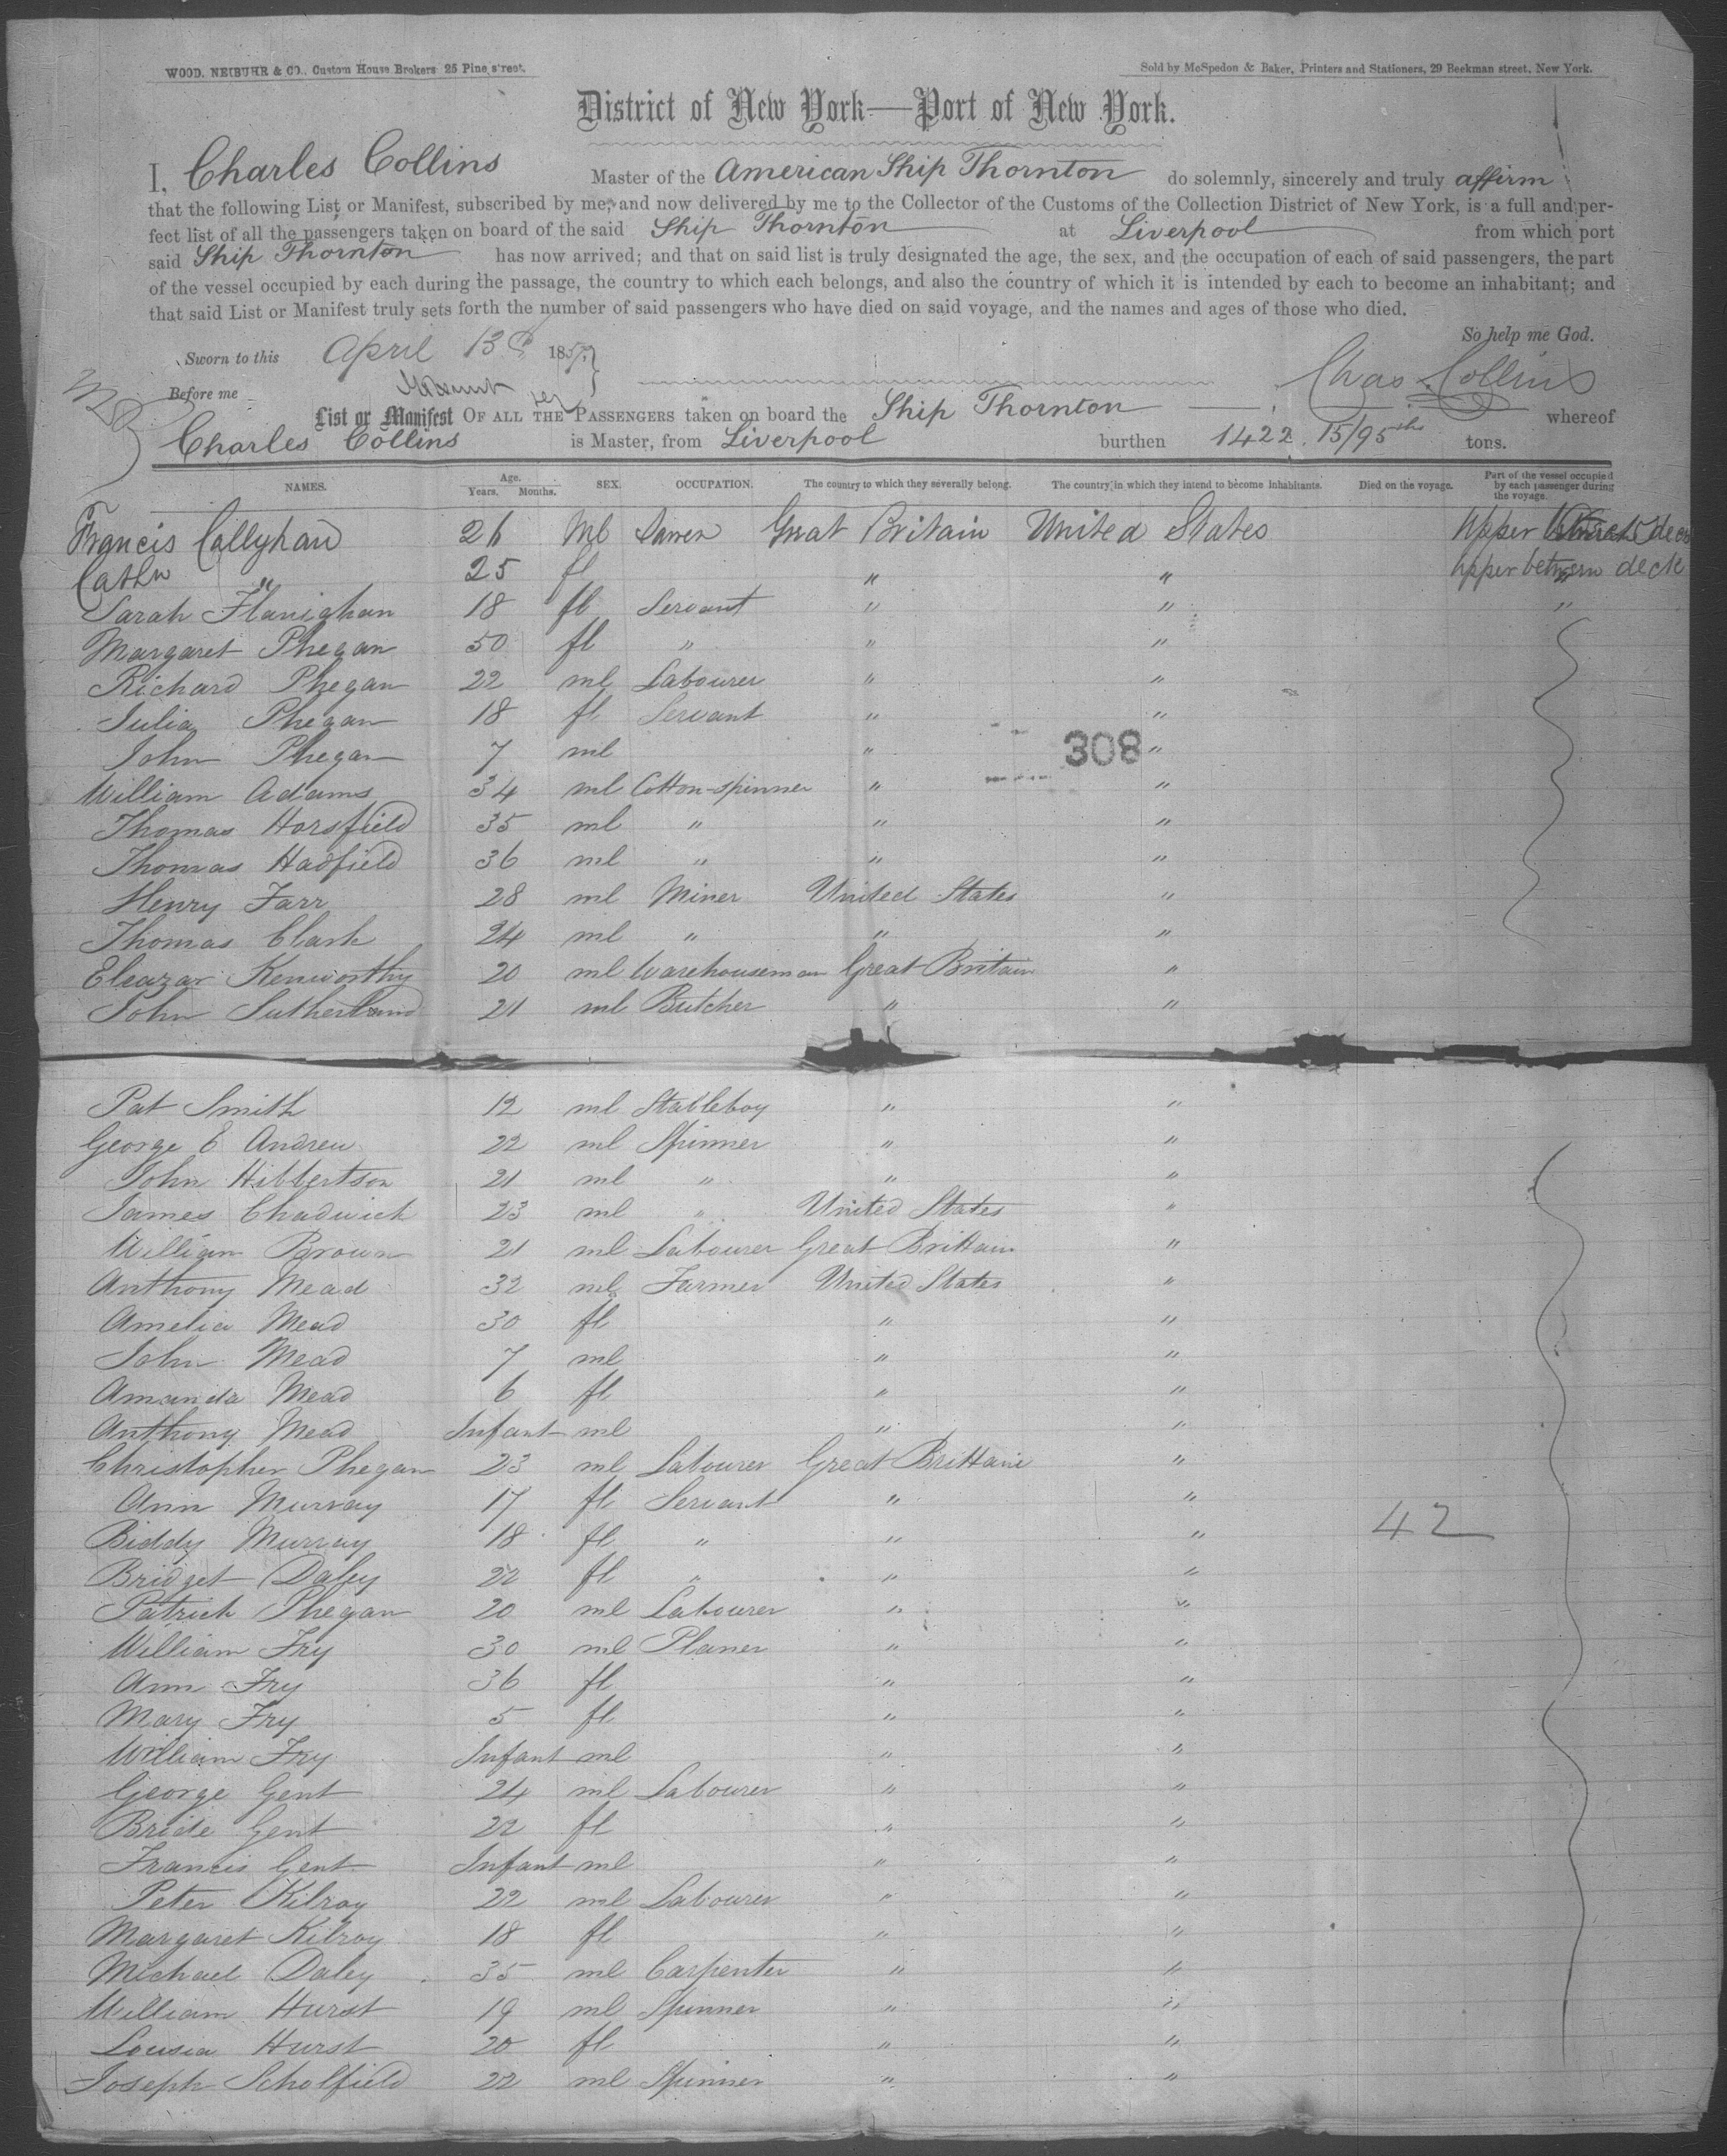 WOOD, NEIBUHR & CO., Custom House Brokers 25 Pine street.
Sold by McSpedon & Baker, Printers and Stationers, 29 Beekman street, New York.
District of New York—Port of New York.
I, Charles Collins Master of the American Ship Thornton do solemnly, sincerely and truly affirm
that the following List or Manifest, subscribed by me, and now delivered by me to the Collector of the Customs of the Collection District of New York, is a full and per-
fect list of all the passengers taken on board of the said Ship Thornton at Liverpool from which port
said Ship Thornton has now arrived; and that on said list is truly designated the age, the sex, and the occupation of each of said passengers, the part
of the vessel occupied by each during the passage, the country to which each belongs, and also the country of which it is intended by each to become an inhabitant; and
that said List or Manifest truly sets forth the number of said passengers who have died on said voyage, and the names and ages of those who died.
So help me God.
Sworn to this April 13 185
Chas Collins
Before me
List or Manifest OF ALL THE PASSENGERS taken on board the Ship Thornton whereof
Charles Collins is Master, from Liverpool burthen 1422 15/95ths tons.
NAMES. Age. Years. Months. SEX. OCCUPATION. The country to which they severally belong. The country in which they intend to become inhabitants. Died on the voyage. Part of the vessel occupied by each passenger during the voyage.
Francis Callyhan 26 Ml Great Britain United States Upper deck
Cathn " 25 fl " " Upper between deck
Sarah Flanighan 18 fl Servant " " "
Margaret Phegan 50 fl " " "
Richard Phegan 22 ml Labourer " "
Julia Phegan 18 fl Servant " "
John Phegan 7 ml " "
308
William Adams 34 ml Cotton-spinner " "
Thomas Horsfield 35 ml " " "
Thomas Hadfield 36 ml " " "
Henry Farr 28 ml Miner United States "
Thomas Clark 24 ml " " "
Eleazar Kenworthy 20 ml Warehouseman Great Britain "
John Sutherland 21 ml Butcher " "
Pat Smith 12 ml Stableboy " "
George E Andrew 22 ml Spinner " "
John Hibbertson 21 ml " " "
James Chadwick 23 ml " United States "
William Brown 21 ml Labourer Great Brittain "
Anthony Mead 32 ml Farmer United States "
Amelia Mead 30 fl " "
John Mead 7 ml " "
Amanda Mead 6 fl " "
Anthony Mead Infant ml " "
Christopher Phegan 23 ml Labourer Great Brittain "
Ann Murray 17 fl Servant " "
Biddy Murray 18 fl " " " 42
Bridget Daley 22 fl " " "
Patrick Phegan 20 ml Labourer " "
William Fry 30 ml Planer " "
Ann Fry 36 fl " "
Mary Fry 5 fl " "
William Fry Infant ml " "
George Gent 24 ml Labourer " "
Bride Gent 22 fl " "
Francis Gent Infant ml " "
Peter Kilroy 22 ml Labourer " "
Margaret Kilroy 18 fl " "
Michael Daley 35 ml Carpenter " "
William Hurst 19 ml Spinner " "
Lousia Hurst 20 fl " "
Joseph Scholfield 22 ml Spinner " "